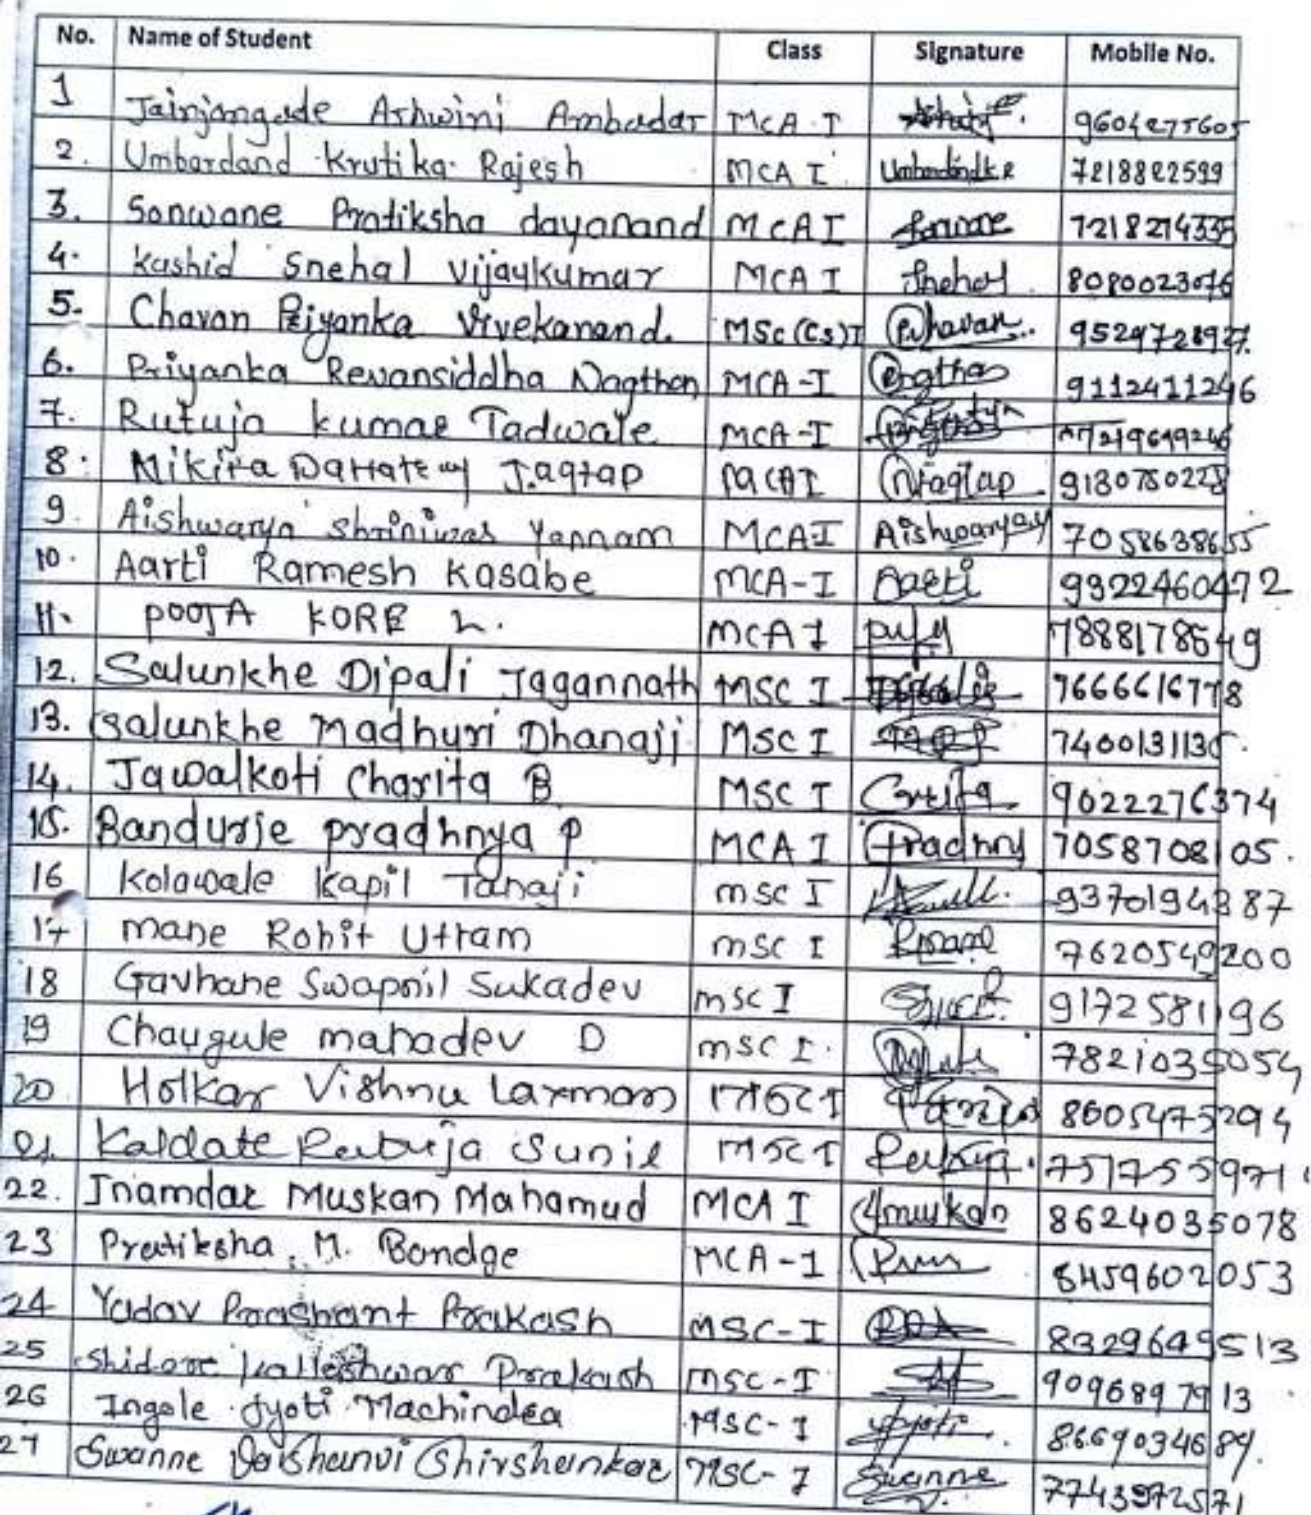 No. Name of Student Class Signature Mobile No.
1 Jainjangade Ashwini Ambadar MCA-I
2. Umbardand Krutika Rajesh MCA I Umbardandk R 7218822599
3. Sonwane Pratiksha dayanand MCA I 7218214335
4. Kashid Snehal Vijaykumar MCA I Snehal 8080023076
5. Chavan Priyanka Vivekanand. MSc (CS) I PChavan 9529728927.
6. Priyanka Revansiddha Nagthan MCA-I 9112411246
7. Rutuja Kumar Tadwale MCA-I 7219649246
8. Nikita Jagtap MCA I NJagtap 9130750228
9. Aishwarya Shriniwas Yannam MCA-I Aishwaryay 7058638655
10. Aarti Ramesh Kasabe MCA-I Aarti 9922460472
11. POOJA KORE L. MCA I 7888178549
12. Salunkhe Dipali Jagannath MSC I 7666616778
13. Salunkhe Madhuri Dhanaji MSC I
14. Jawalkoti Charita B MSC I 9022276374
15. Bandurje pradhnya P MCA I Pradhny 7058708105.
16 Kolawale Kapil Tanaji MSC I 9370194387
17 Mane Rohit Uttam MSC I Rmane 7620549200
18 Gavhane Swapnil Sukadev MSC I 9172581196
19 Chaugule mahadev D MSC I. 7821035054
20 Holkar Vishnu Laxman MSC I 8605475294
21. Kaldate Rutuja Sunil MSC I 7517559711
22. Inamdar Muskan Mahamud MCA I Amuskan 8624035078
23 Pratiksha M. Bondge MCA-I 8459602053
24 Yadav Prashant Prakash MSC-I 8329649513
25 Shidore Kalleshwar Prakash MSC-I 9096897913
26 Ingole Jyoti Machindra MSC-I Jyoti. 8669034689.
27 Swanne Shivshankar MSC-I Swanne 7743972571